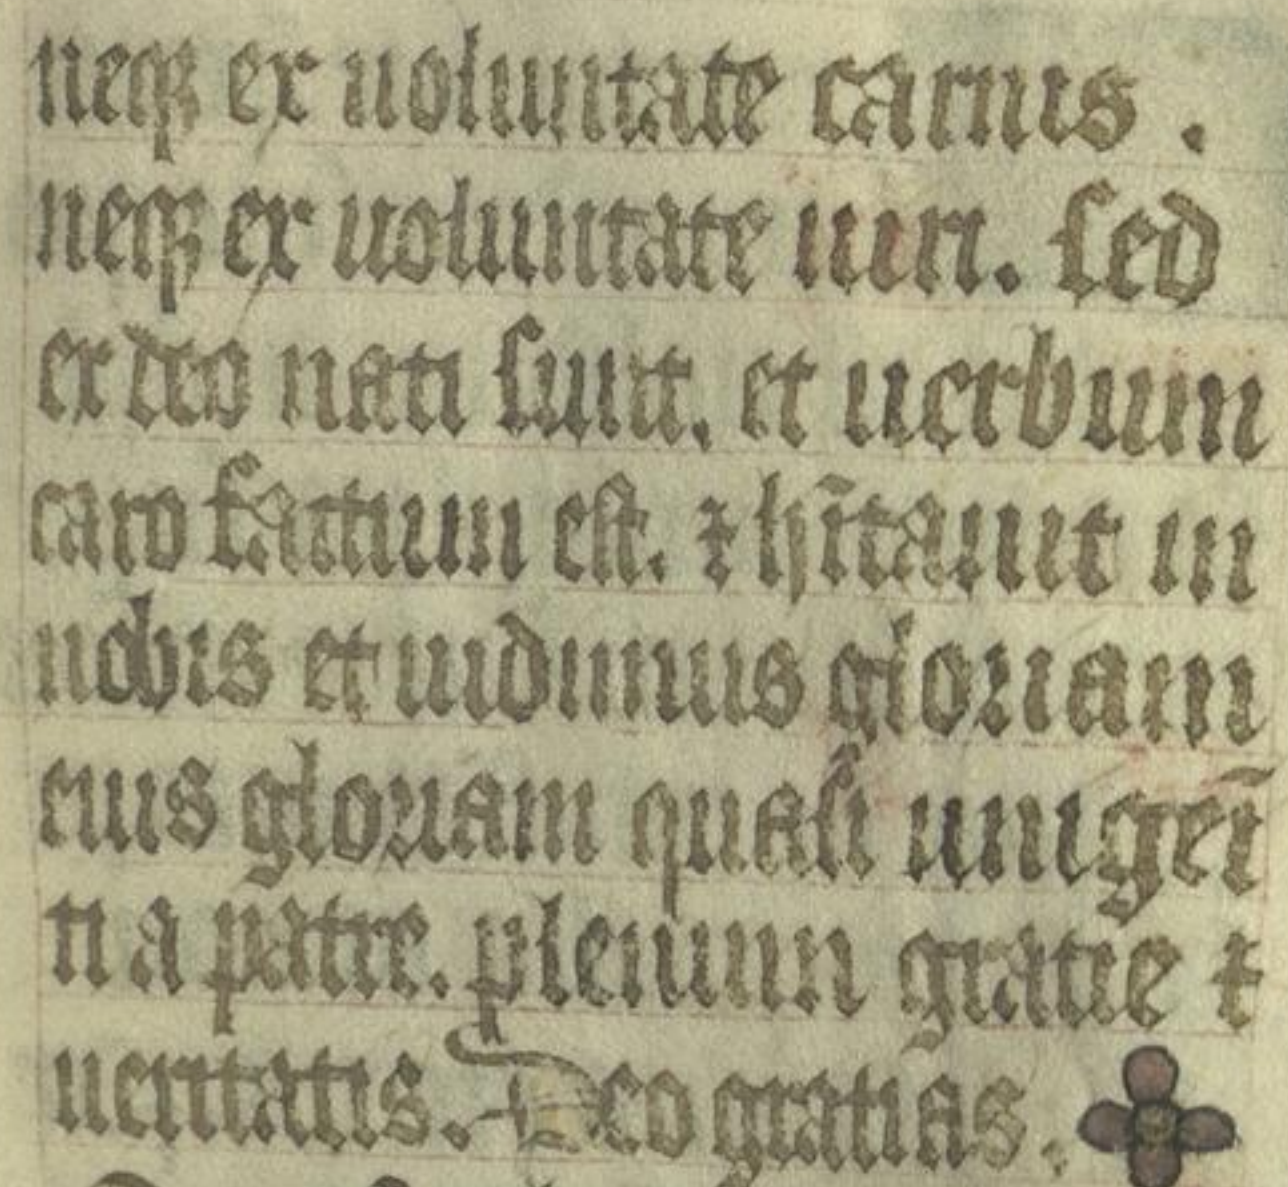 neqꝫ ex uoluntate carnis .
neqꝫ ex uoluntate uiri. sed
ex deo nati sunt. et uerbum
caro factum est. ⁊ hītauit in
nobis et uidimus gloriam
eius gloriam quasi unigeī
ti a patre. plenum gratie ⁊
ueritatis. Deo gratias.